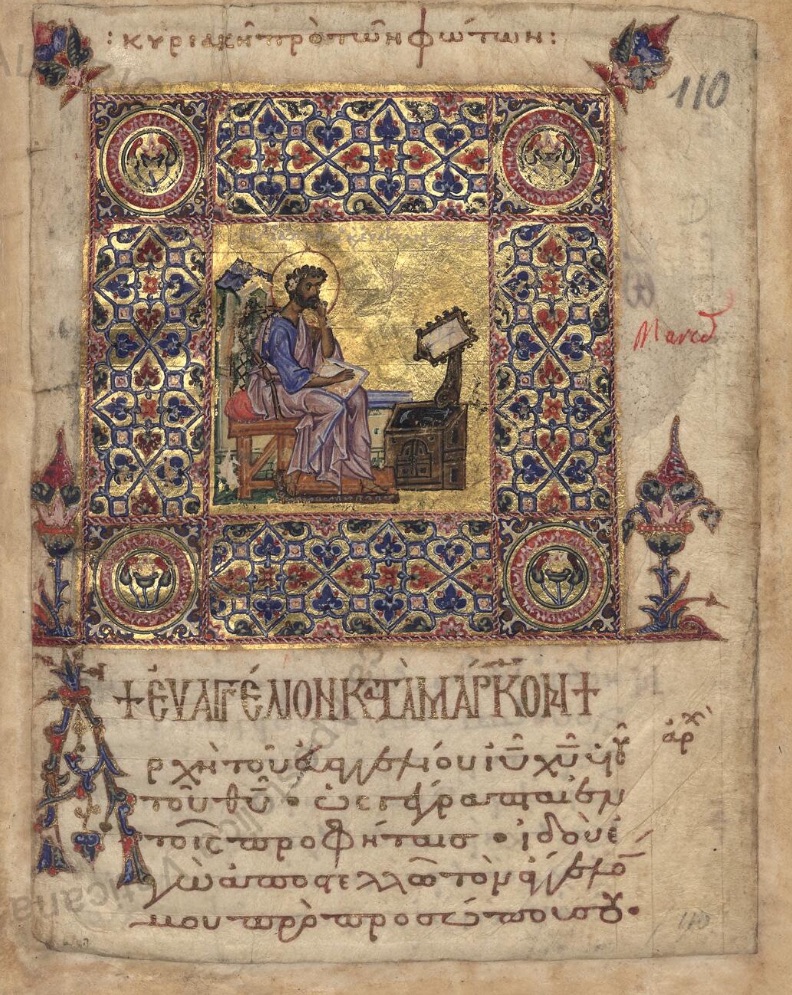 : κυριακῆ πρὸ τῶν φώτων :
110
Marco
+ ἘΥΑΓΓΈΛΙΟΝ Κ(ΑΤ)Ὰ ΜΆΡΚΟΝ +
ἀρχ
Ἀρχὴ τοῦ εὐαγγελίου ἰῦ χῦ ὑϊοῦ
τοῦ θῦ · ὡς γέγραπται ἐν
τοῖς προφήταις · ἰδοὺ ἐ
γὼ ἀποστέλλω τὸν ἄγγελον
μου πρὸ προσώπου σου ·
110